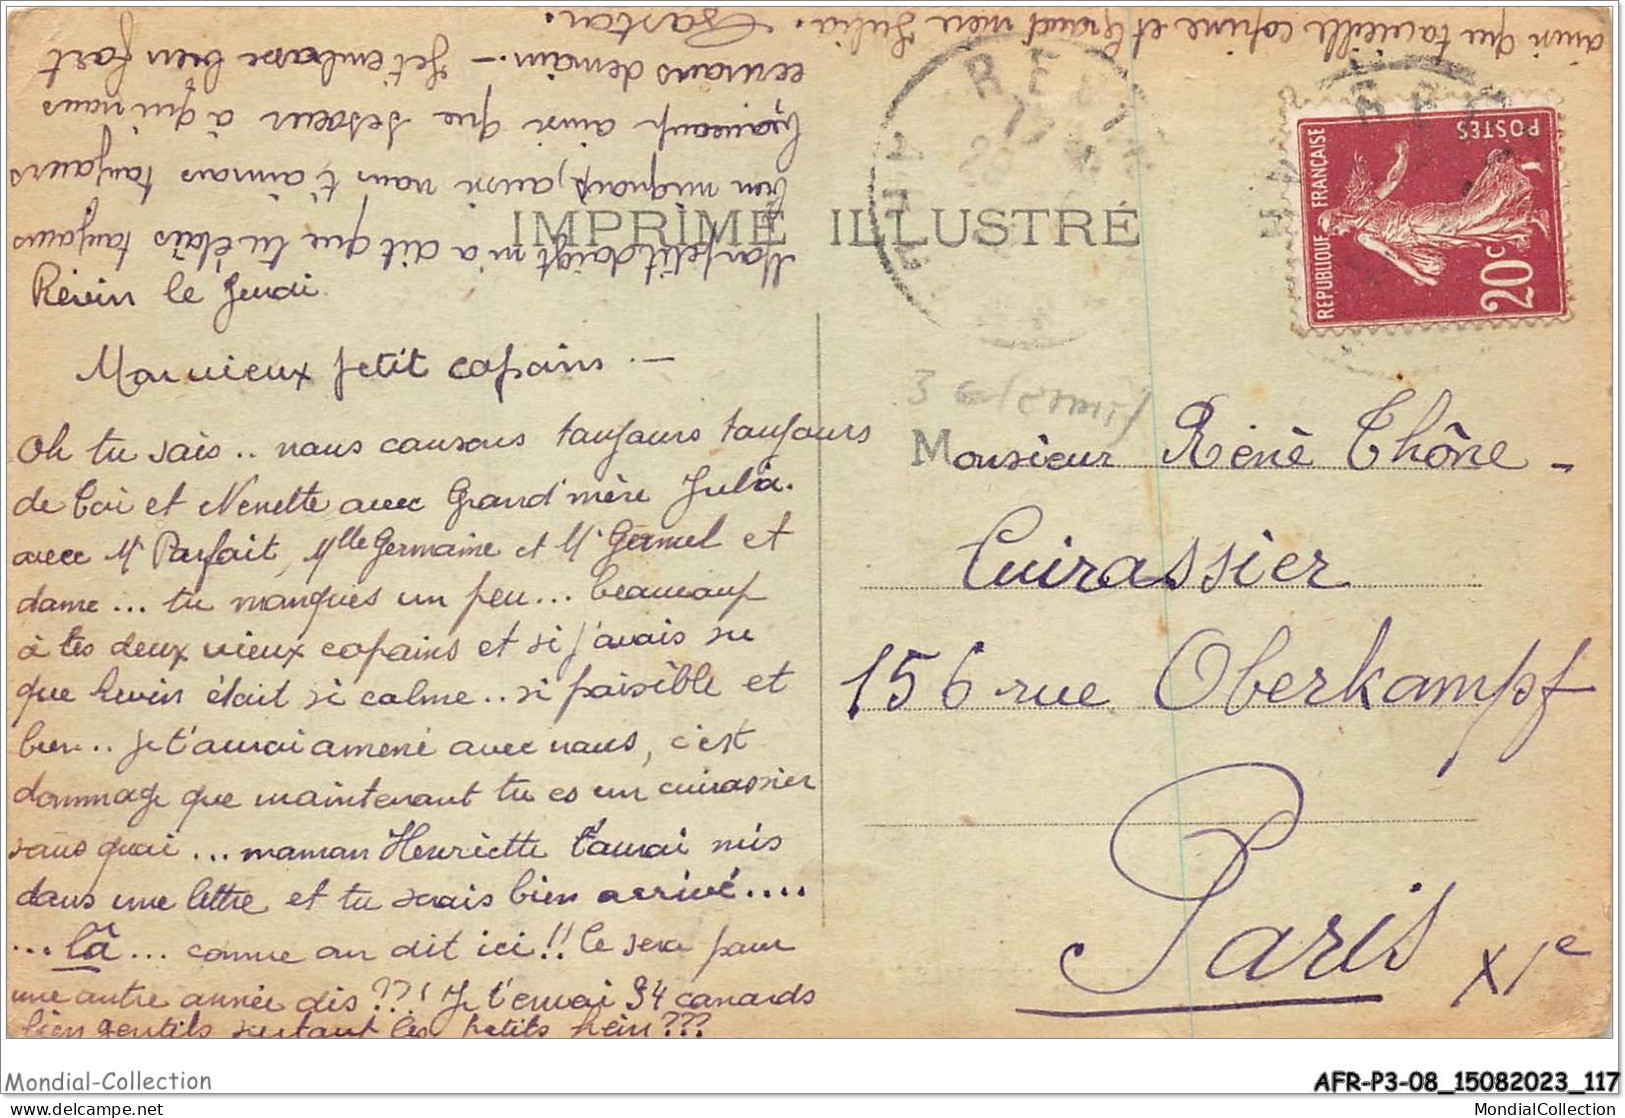 IMPRIMÉ ILLUSTRÉ
Revin le Jeudi
Mon vieux petit copain. —
Oh tu sais .. nous causons toujours toujours
de toi et Nenette avec Grand'mère Julia.
avec Mr Parfait, Mlle Germaine et Mr Gemel et
dame ... tu manques un peu ... beaucoup
à tes deux vieux copains et si j'avais su
que Revin était si calme .. si paisible et
bien .. je t'aurai amené avec nous, c'est
dommage que maintenant tu es un cuirassier
sans quoi ... maman Henriette t'aurai mis
dans une lettre et tu serais bien arrivé ....
... là ... comme on dit ici !! Ce sera pour
une autre année dis ??! Je t'envoi 94 canards
bien gentils surtout les petits hein ???
Mon petit doigt m'a dit que tu étais toujours
bien mignon, aussi nous t'aimons toujours
beaucoup ainsi que ta soeur à qui nous
écrirons demain. — Je t'embrasse bien fort
ainsi que ta vieille copine et Grand mère Julia. Gaston.
REVIN
REPUBLIQUE FRANÇAISE
POSTES
20c
Monsieur René Thône -
Cuirassier
156 rue Oberkampf
Paris XIe
Mondial-Collection
AFR-P3-08_15082023_117
www.delcampe.net
MondialCollection